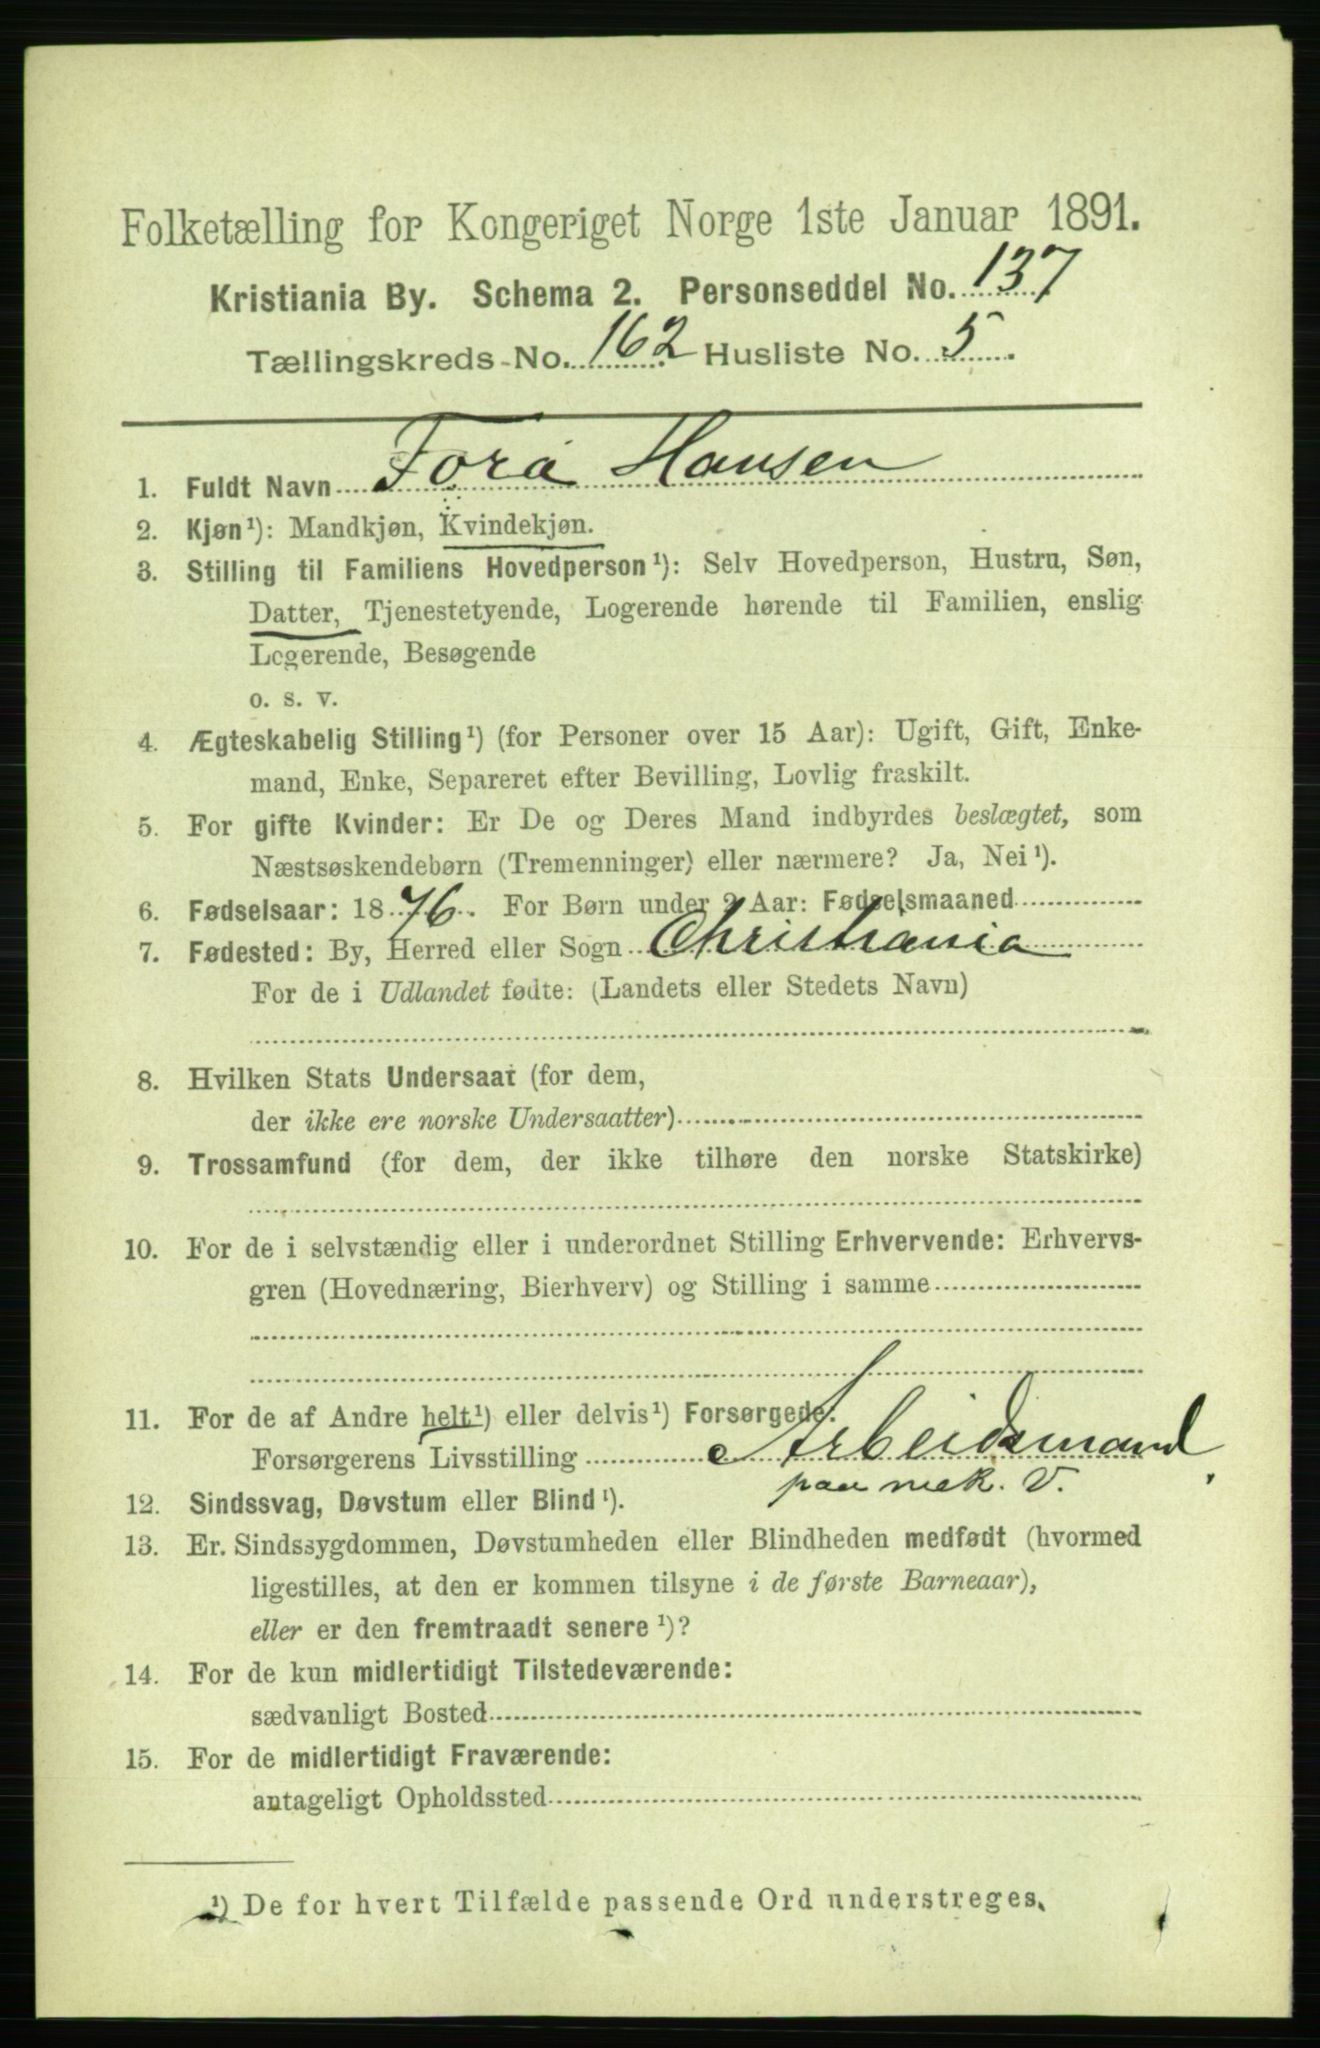 Folketælling for Kongeriget Norge 1ste Januar 1891.
Kristiania By. Schema 2. Personseddel No. 137
Tællingskreds-No. 162 Husliste No. 5.
1. Fuldt Navn Tora Hansen
2. Kjøn¹): Mandkjøn, Kvindekjøn.
3. Stilling til Familiens Hovedperson¹): Selv Hovedperson, Hustru, Søn,
Datter, Tjenestetyende, Logerende hørende til Familien, enslig
Logerende, Besøgende
o. s. v.
4. Ægteskabelig Stilling¹) (for Personer over 15 Aar): Ugift, Gift, Enke-
mand, Enke, Separeret efter Bevilling, Lovlig fraskilt.
5. For gifte Kvinder: Er De og Deres Mand indbyrdes beslægtet, som
Næstsøskendebørn (Tremenninger) eller nærmere? Ja, Nei¹).
6. Fødselsaar: 1876. For Børn under 2 Aar: Fødselsmaaned
7. Fødested: By, Herred eller Sogn Christiania
For de i Udlandet fødte: (Landets eller Stedets Navn)
8. Hvilken Stats Undersaat (for dem,
der ikke ere norske Undersaatter)
9. Trossamfund (for dem, der ikke tilhøre den norske Statskirke)
10. For de i selvstændig eller i underordnet Stilling Erhvervende: Erhvervs-
gren (Hovednæring, Bierhverv) og Stilling i samme
11. For de af Andre helt¹) eller delvis¹) Forsørgede:
Forsørgerens Livsstilling Arbeidsmand
paa mek. V.
12. Sindssvag, Døvstum eller Blind¹).
13. Er Sindssygdommen, Døvstumheden eller Blindheden medfødt (hvormed
ligestilles, at den er kommen tilsyne i de første Barneaar),
eller er den fremtraadt senere¹)?
14. For de kun midlertidigt Tilstedeværende:
sædvanligt Bosted
15. For de midlertidigt Fraværende:
antageligt Opholdssted
¹) De for hvert Tilfælde passende Ord understreges.